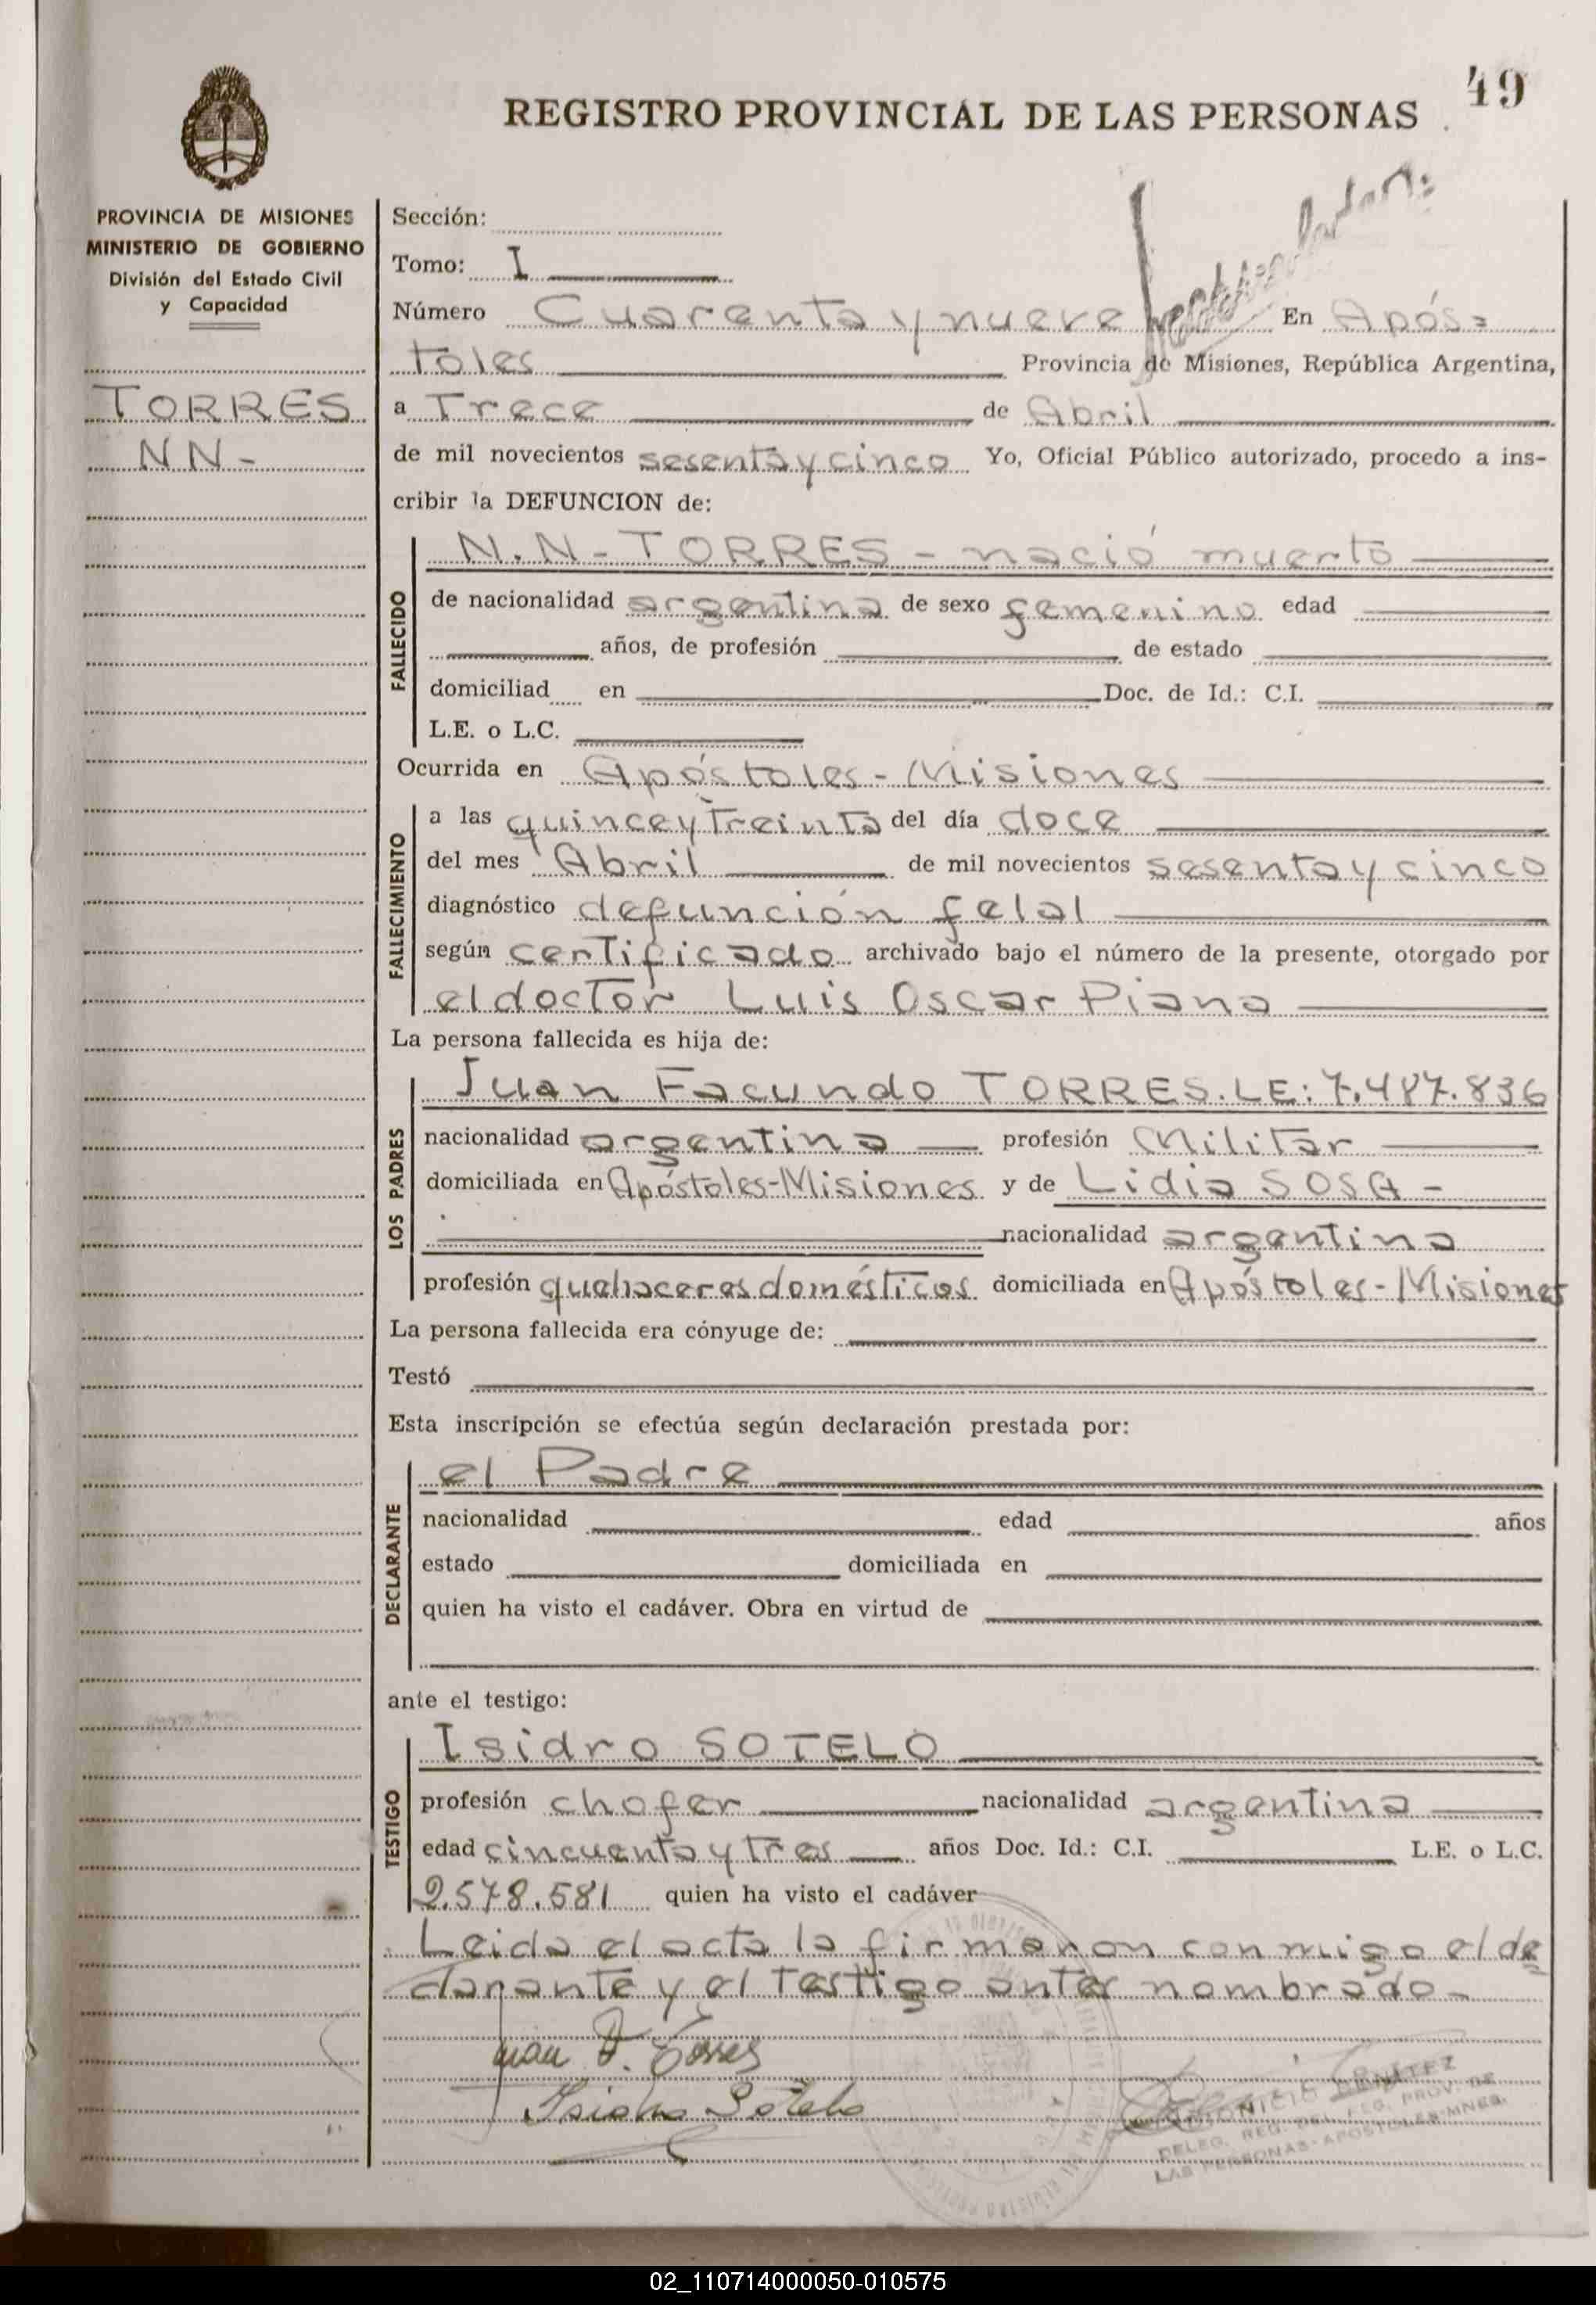 49
REGISTRO PROVINCIAL DE LAS PERSONAS
PROVINCIA DE MISIONES
MINISTERIO DE GOBIERNO
División del Estado Civil
y Capacidad
TORRES
NN-
Sección:
Tomo: I
Número Cuarenta y nueve En Após=
toles Provincia de Misiones, República Argentina,
a Trece de Abril
de mil novecientos sesenta y cinco Yo, Oficial Público autorizado, procedo a ins-
cribir la DEFUNCION de:
FALLECIDO
N.N-TORRES - nació muerto
de nacionalidad argentina de sexo femenino edad
años, de profesión de estado
domiciliad en Doc. de Id.: C.I.
L.E. o L.C.
Ocurrida en Apóstoles-Misiones
FALLECIMIENTO
a las quince y Treinta del día doce
del mes Abril de mil novecientos sesenta y cinco
diagnóstico defunción felal
según certificado archivado bajo el número de la presente, otorgado por
el doctor Luis Oscar Piana
La persona fallecida es hija de:
LOS PADRES
Juan Facundo TORRES. LE: 7.487.836
nacionalidad argentina profesión Militar
domiciliada en Apóstoles-Misiones y de Lidia SOSA -
nacionalidad argentina
profesión quehaceres domésticos domiciliada en Apóstoles-Misiones
La persona fallecida era cónyuge de:
Testó
Esta inscripción se efectúa según declaración prestada por:
DECLARANTE
el Padre
nacionalidad edad años
estado domiciliada en
quien ha visto el cadáver. Obra en virtud de
ante el testigo:
TESTIGO
Isidro SOTELO
profesión chofer nacionalidad argentina
edad cincuenta y tres años Doc. Id.: C.I. L.E. o L.C.
2.578.581 quien ha visto el cadáver
Leida el acta la firmaron conmigo el de
clarante y el Testigo antes nombrado-
Juan F. Torres
Isidro Sotelo
DIONICIO BENITEZ
DELEG. REG. DEL REG. PROV. DE
LAS PERSONAS-APOSTOLES-MNES.
02_110714000050-010575